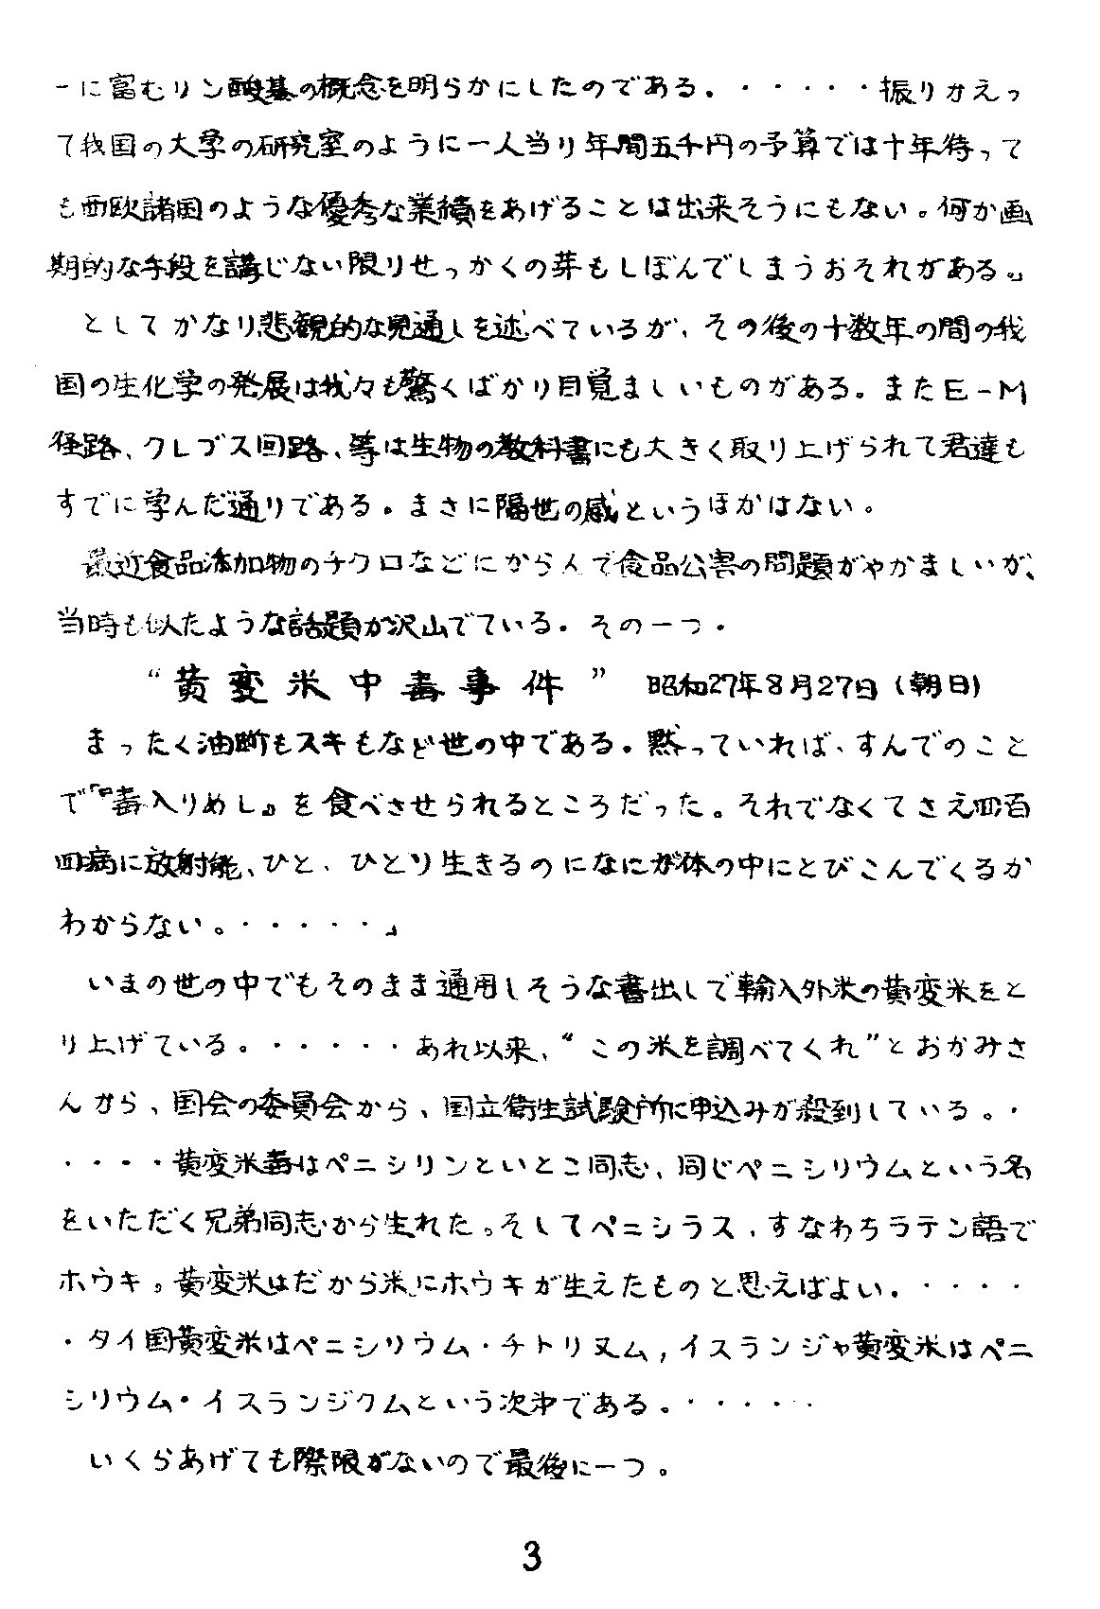 ーに富むリン酸基の概念を明らかにしたのである。・・・・・振りかえっ
て我国の大学の研究室のように一人当り年間五千円の予算では十年待って
も西欧諸国のような優秀な業績をあげることは出来そうにもない。何か画
期的な手段を講じない限りせっかくの芽もしぼんでしまうおそれがある。」
としてかなり悲観的な見通しを述べているが、その後の十数年の間の我
国の生化学の発展は我々も驚くばかり目覚ましいものがある。またE-M
径路、クレブス回路、等は生物の教科書にも大きく取り上げられて君達も
すでに学んだ通りである。まさに隔世の感というほかはない。
最近食品添加物のチクロなどにからんで食品公害の問題がやかましいが、
当時も似たような話題が沢山でている。その一つ。
“黄変米中毒事件” 昭和27年8月27日(朝日)
まったく油断もスキもなど世の中である。黙っていれば、すんでのこと
で『毒入りめし』を食べさせられるところだった。それでなくてさえ四百
四病に放射能、ひと、ひとり生きるのになにが体の中にとびこんでくるか
わからない。・・・・・」
いまの世の中でもそのまま通用しそうな書出しで輸入外米の黄変米をと
り上げている。・・・・・あれ以来、“この米を調べてくれ”とおかみさ
んから、国会の委員会から、国立衛生試験所に申込みが殺到している。・
・・・・黄変米毒はペニシリンといとこ同志、同じペニシリウムという名
をいただく兄弟同志から生れた。そしてペニシラス、すなわちラテン語で
ホウキ。黄変米はだから米にホウキが生えたものと思えばよい。・・・・
・タイ国黄変米はペニシリウム・チトリヌム,イスランジャ黄変米はペニ
シリウム・イスランジクムという次第である。・・・・・
いくらあげても際限がないので最後に一つ。
3